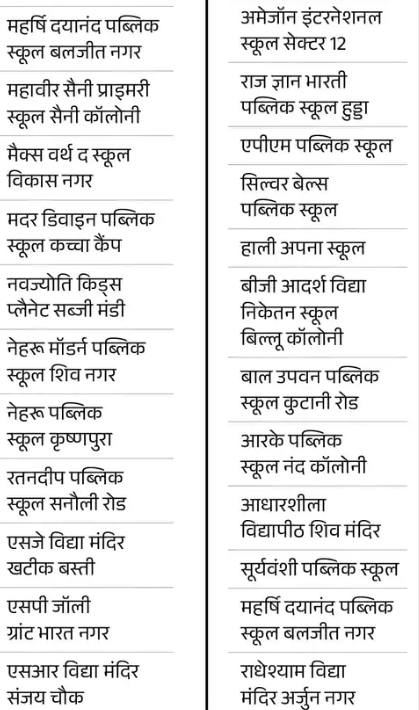 महर्षि दयानंद पब्लिक
स्कूल बलजीत नगर
महावीर सैनी प्राइमरी
स्कूल सैनी कॉलोनी
मैक्स वर्थ द स्कूल
विकास नगर
मदर डिवाइन पब्लिक
स्कूल कच्चा कैंप
नवज्योति किड्स
प्लैनेट सब्जी मंडी
नेहरू मॉडर्न पब्लिक
स्कूल शिव नगर
नेहरू पब्लिक
स्कूल कृष्णपुरा
रतनदीप पब्लिक
स्कूल सनौली रोड
एसजे विद्या मंदिर
खटीक बस्ती
एसपी जॉली
ग्रांट भारत नगर
एसआर विद्या मंदिर
संजय चौक
अमेजॉन इंटरनेशनल
स्कूल सेक्टर 12
राज ज्ञान भारती
पब्लिक स्कूल हुड्डा
एपीएम पब्लिक स्कूल
सिल्वर बेल्स
पब्लिक स्कूल
हाली अपना स्कूल
बीजी आदर्श विद्या
निकेतन स्कूल
बिल्लू कॉलोनी
बाल उपवन पब्लिक
स्कूल कुटानी रोड
आरके पब्लिक
स्कूल नंद कॉलोनी
आधारशीला
विद्यापीठ शिव मंदिर
सूर्यवंशी पब्लिक स्कूल
महर्षि दयानंद पब्लिक
स्कूल बलजीत नगर
राधेश्याम विद्या
मंदिर अर्जुन नगर